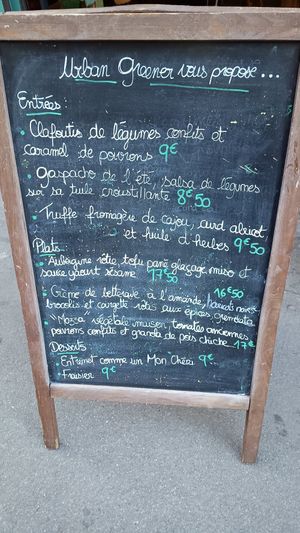 Urban Greener vous propose...
Entrées :
• Clafoutis de légumes confits et
caramel de poivrons 9€
• Gaspacho de l'été, salsa de légumes
sur sa tuile croustillante 8€50
• Truffe fromagère de cajou, abricot
et huile d'herbes 9€50
Plats :
• Aubergine rôtie, tofu pané glaçage miso et
sauce yaourt sésame 17€50
• Crème de betterave à l'amande, haricots noirs, 16€50
brocolis et courgette rôtis aux épices, gremolata
• végétale maison, tomates anciennes
poivrons confits et granola de pois chiche 17€
Desserts :
• Entremet comme un Mon Chéri 9€
• Fraisier 9€